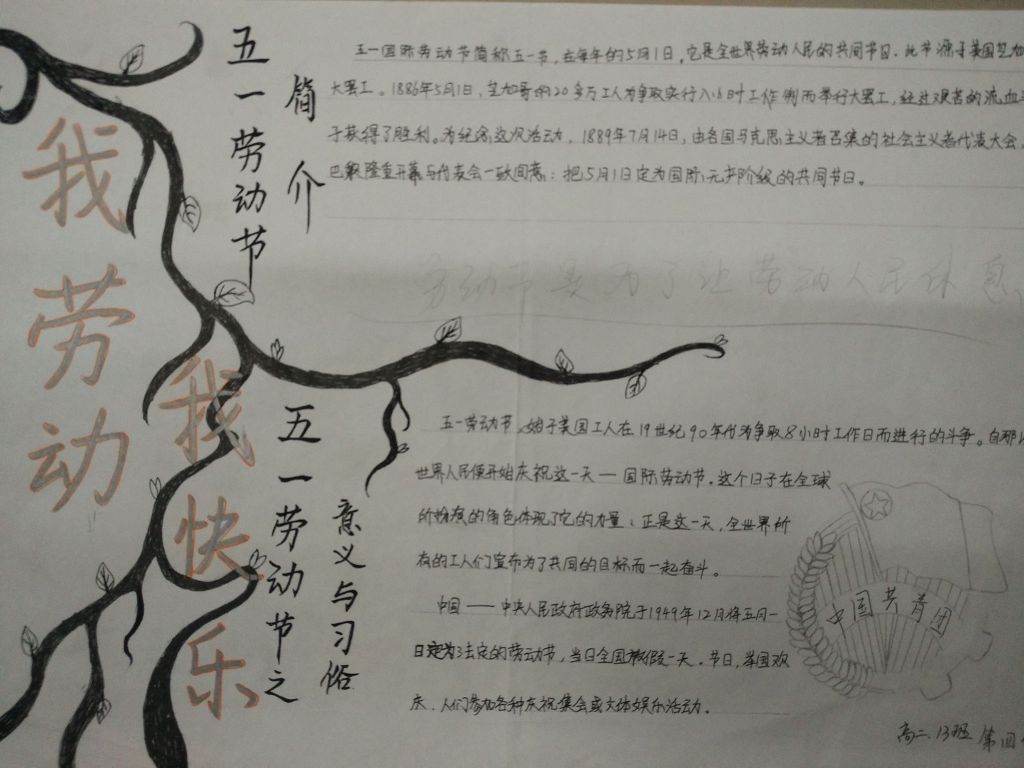 我劳动
我快乐
五一劳动节
简介
五一国际劳动节简称五一节,在每年的5月1日,它是全世界劳动人民的共同节日。此节源于美国芝加
大罢工。1886年5月1日,芝加哥的20多万工人为争取实行八小时工作制而举行大罢工,经过艰苦的流血
于获得了胜利。为纪念这次活动,1889年7月14日,由各国马克思主义者召集的社会主义者代表大会,
巴黎隆重开幕与代表会一致同意:把5月1日定为国际无产阶级的共同节日。
劳动节是为了让劳动人民休息
五一劳动节之
意义与习俗
五一劳动节,始于美国工人在19世纪90年代为争取8小时工作日而进行的斗争。自那
世界人民便开始庆祝这一天——国际劳动节。这个日子在全球
所扮演的角色体现了它的力量:正是这一天,全世界所
有的工人们宣布为了共同的目标而一起奋斗。
中国——中央人民政府政务院于1949年12月将五月一
日定为法定的劳动节,当日全国放假一天。节日,举国欢
庆,人们参加各种庆祝集会或文体娱乐活动。
中国共青团
高二.13班 第四